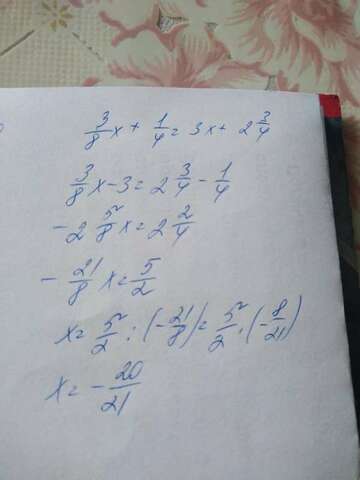 3/8 x + 1/4 = 3x + 2 3/4
3/8 x - 3 = 2 3/4 - 1/4
- 2 5/8 x = 2 2/4
- 21/8 x = 5/2
x = 5/2 : (- 21/8) = 5/2 · (- 8/21)
x = - 20/21